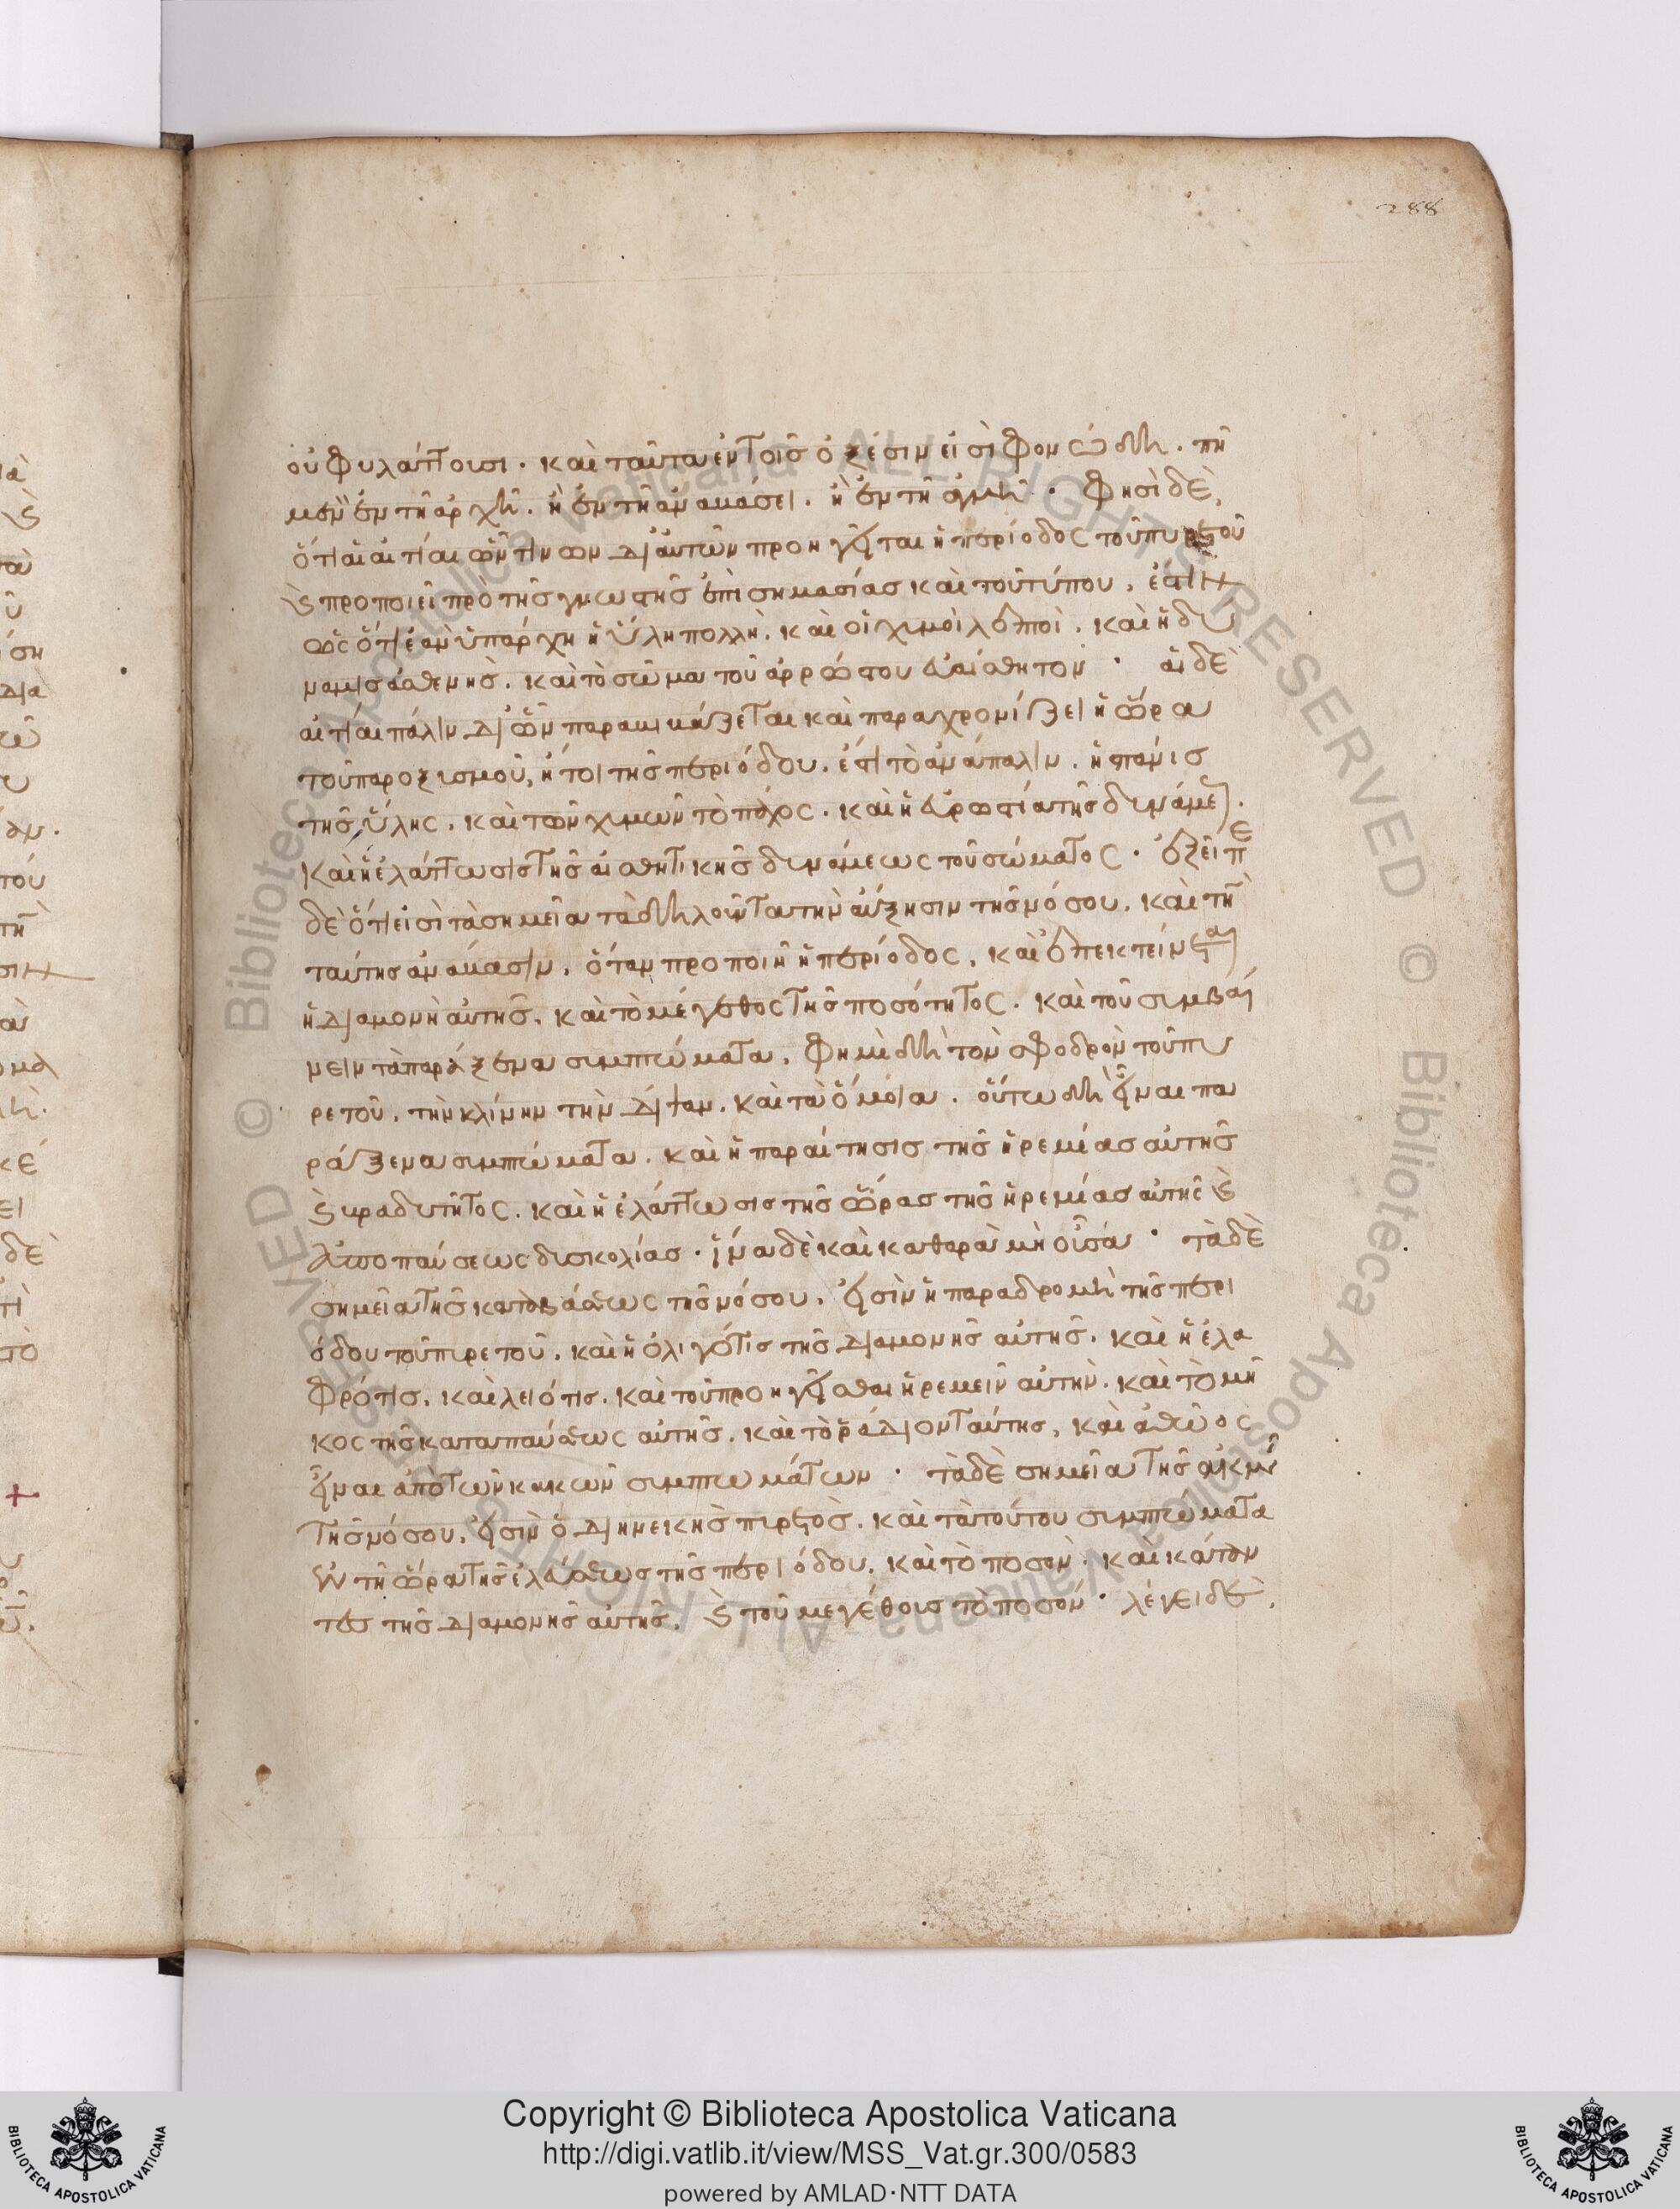 288
οὐ φυλάττουσι · καὶ ταῦτα ἐν τοῖς ὀξέσιν εἰσὶ φονώδη · πῆ
μὲν ἐν τῇ ἀρχῇ · ἢ ἐν τῇ ἀναβάσει · ἢ ἐν τῇ ἀκμῇ · φησὶ δὲ,
ὅτι αἱ αἰτίαι ὧν τινων δι' αὐτῶν προηγεῖται ἡ περίοδος τοῦ πυρετοῦ
καὶ προποιεῖ πρὸ τῆς γνωστῆς ἐπισημασίας καὶ τοῦ τύπου, ἐστὶν
ὡς ὅτι ἐὰν ὑπάρχη ἡ ὕλη πολλὴ · καὶ οἱ χυμοὶ λεπτοὶ · καὶ ἡ δύ
ναμις ἀσθενὴς · καὶ τὸ σῶμα τοῦ ἀρρώστου εὐαίσθητον · αἱ δὲ
αἰτίαι πάλιν δι' ὧν παρακμάζεται καὶ παραχρονίζει ἡ ὥρα
τοῦ παροξυσμοῦ, ἤτοι τῆς περιόδου, ἐστὶ τὸ ἀνάπαλιν · ἡ σπάνις
τῆς ὕλης · καὶ τῶν χυμῶν τὸ πάχος · καὶ ἡ εὐρωστία τῆς δυνάμεως ·
καὶ ἡ ἐλάττωσις τῆς αἰσθητικῆς δυνάμεως τοῦ σώματος ·
δὲ ὅτι εἰσὶ τὰ σημεῖα τὰ δηλοῦντα τὴν αὔξησιν τῆς νόσου · καὶ τὴν
ταύτης ἀνάβασιν, ὅταν προποιῆ ἡ περίοδος, καὶ ἐπεκτείνεται
ἡ διαμονὴ αὐτῆς, καὶ τὸ μέγεθος τῆς ποσότητος · καὶ τοῦ συμβαί
νειν τὰ παράξενα συμπτώματα, φημὶ δὴ τὸν σφοδρὸν τοῦ πυ
ρετοῦ, τὴν κλίνην τὴν δίψαν · καὶ τὰ ὅμοια · οὕτω δὴ εἶναι πα
ράξενα συμπτώματα · καὶ ἡ παραίτησις τῆς ἠρεμίας αὐτῆς
καὶ βραδυτῆτος · καὶ ἡ ἐλάττωσις τῆς ὥρας τῆς ἠρεμίας αὐτῆς καὶ
ἀποπαύσεως δυσκολίας · ἵνα δὲ καὶ καθαρὰ μὴ οὖσα · τὰ δὲ
σημεῖα τῆς καταβάσεως τῆς νόσου, εἰσὶν ἡ παραδρομὴ τῆς περι
όδου τοῦ πυρετοῦ, καὶ ἡ ὀλιγότις τῆς διαμονῆς αὐτῆς, καὶ ἡ ἐλα
φρότις, καὶ λειότις · καὶ τοῦ προηγεῖσθαι ἠρεμεῖν αὐτὴν · καὶ τὸ μῆ
κος τῆς καταπαύσεως αὐτῆς · καὶ τὸ ῥάδιον ταύτης, καὶ ἀθῶος
εἶναι ἀπὸ τῶν κακῶν συμπτωμάτων · τὰ δὲ σημεῖα τῆς ἀκμῆς
τῆς νόσου, εἰσὶν ὁ διηνεκὴς πυρετὸς · καὶ τὰ τούτου συμπτώματα
ἐν τῇ ὥρα τῆς ἐλεύσεως τῆς περιόδου, καὶ τὸ ποσὸν · καὶ
τῆς διαμονῆς αὐτῆς, καὶ τοῦ μεγέθους τὸ ποσόν · λέγει δὲ,
Copyright © Biblioteca Apostolica Vaticana
http://digi.vatlib.it/view/MSS_Vat.gr.300/0583
powered by AMLAD·NTT DATA